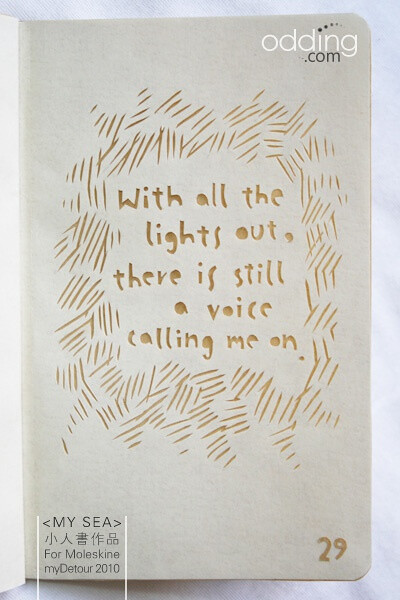 odding
.com
With all the
lights out,
there is still
a voice
calling me on.
29
<MY SEA>
小人書作品
For Moleskine
myDetour 2010